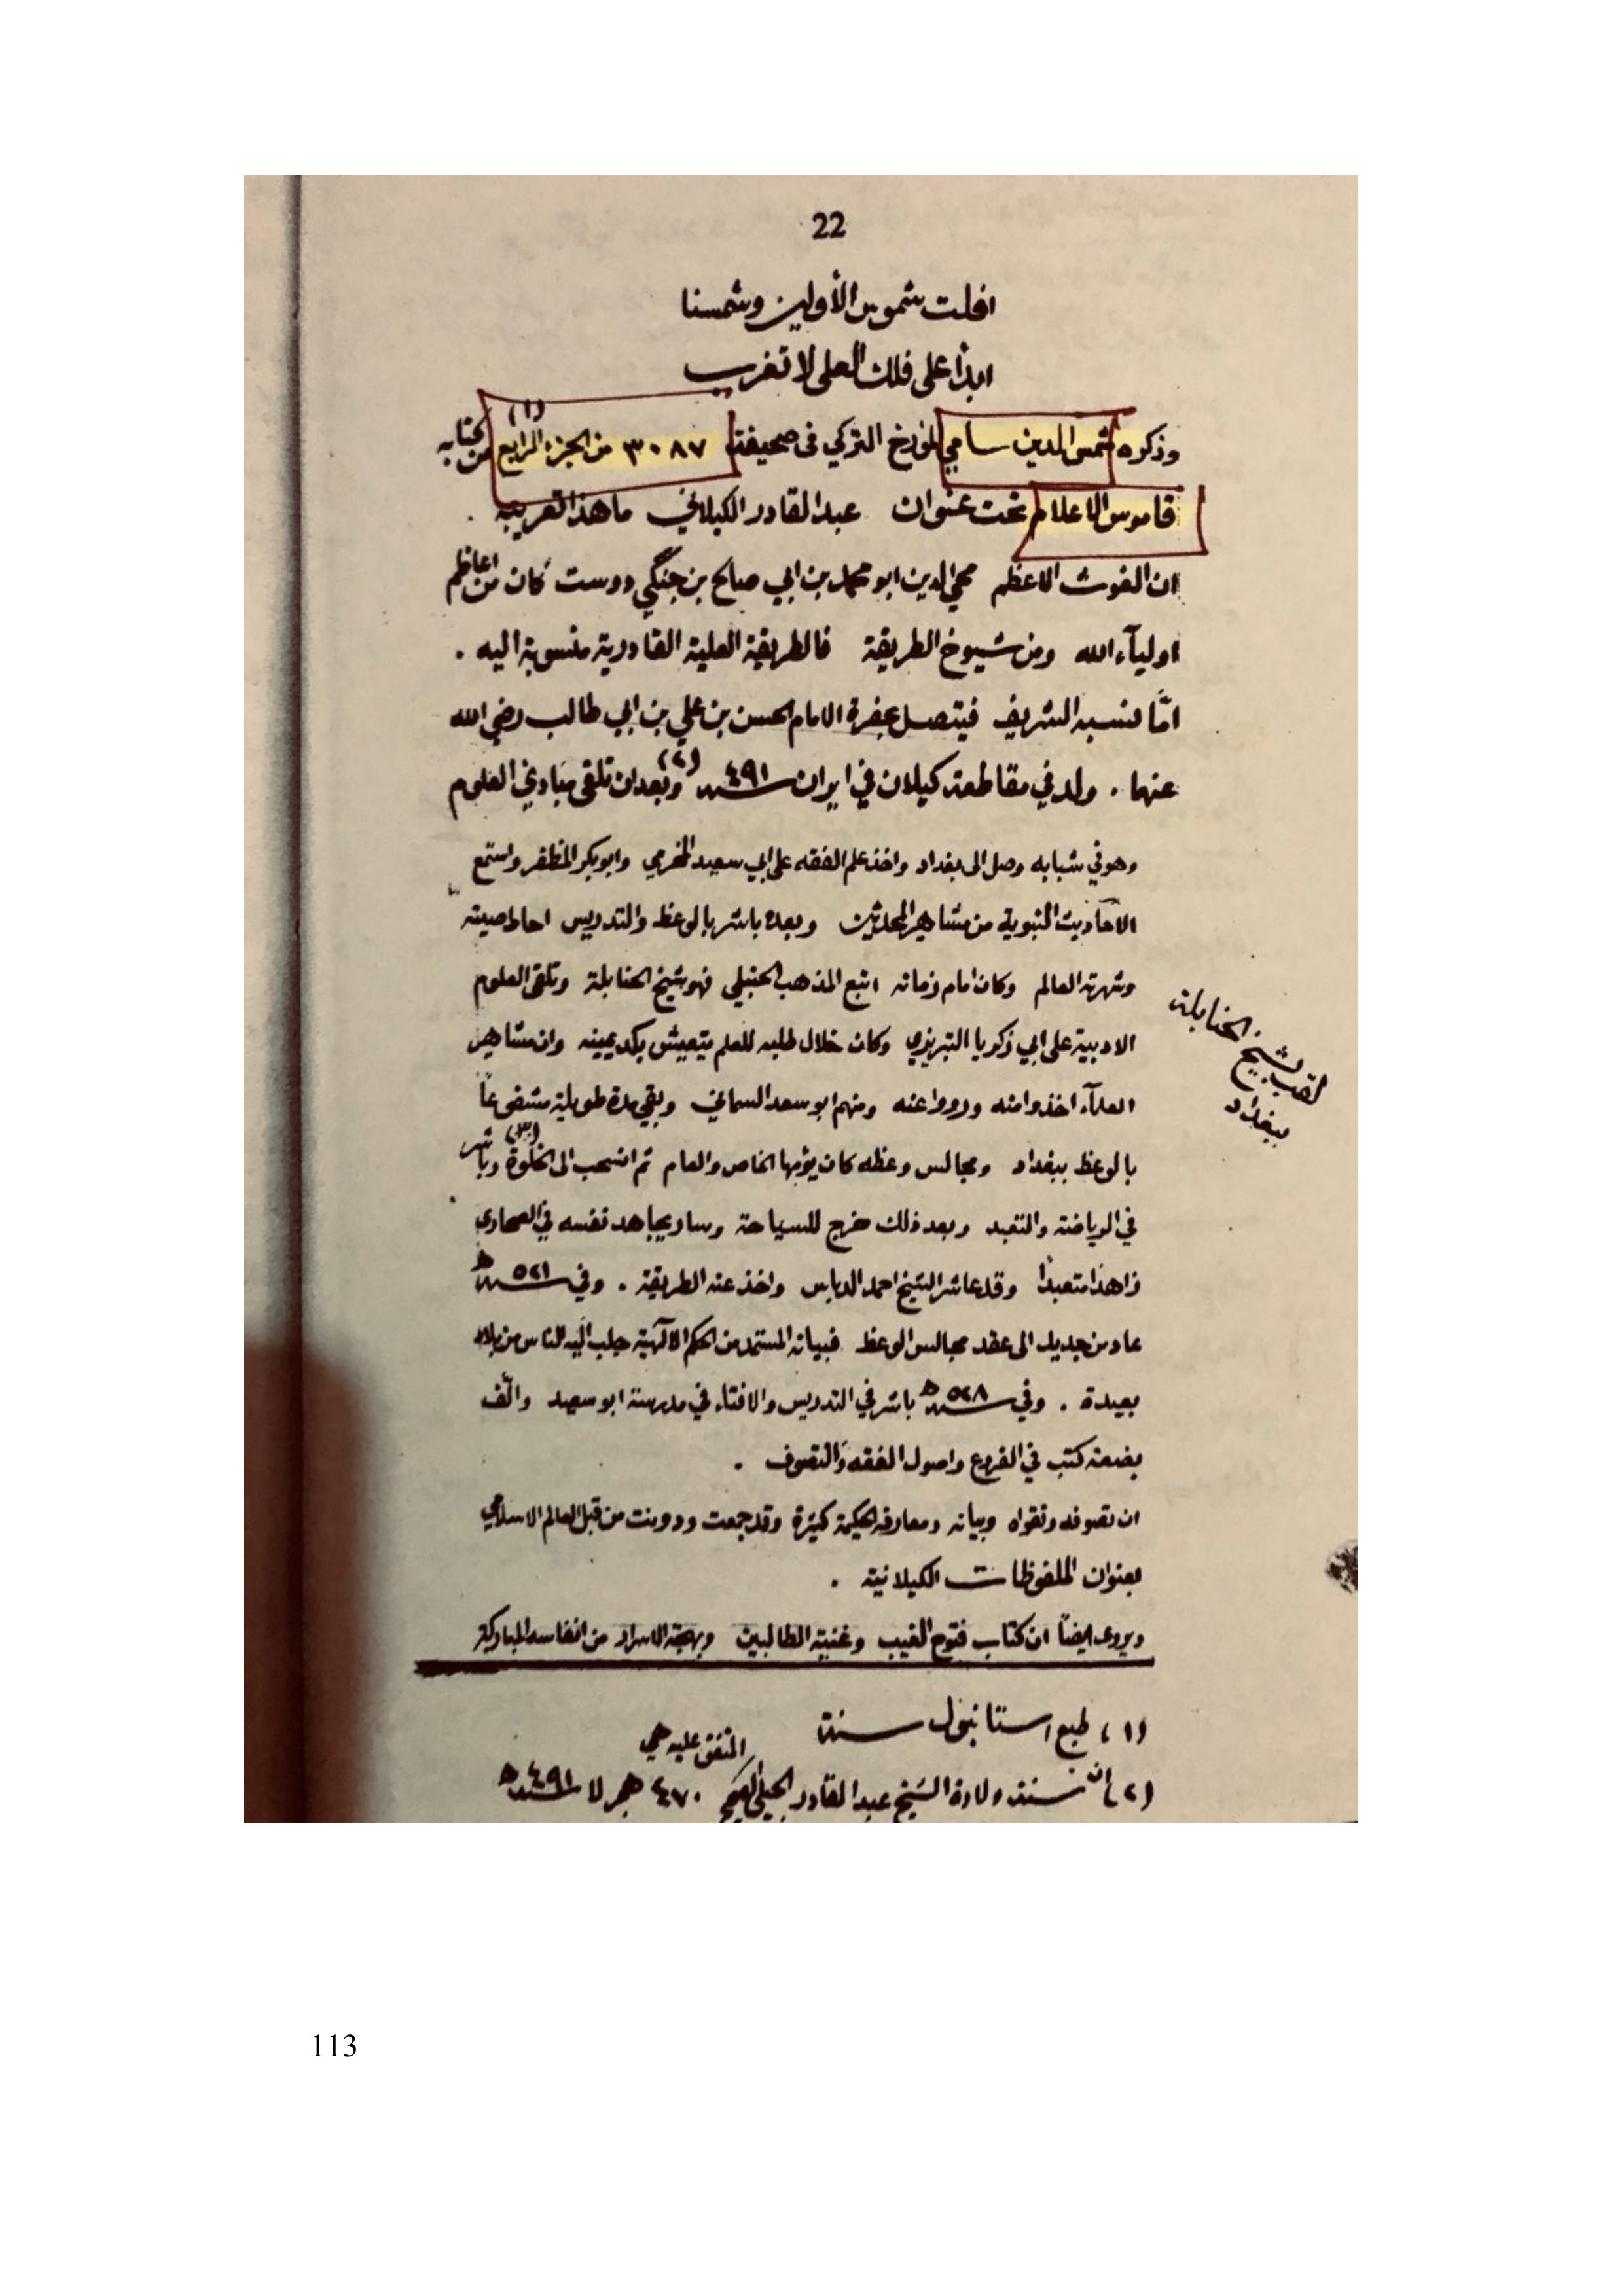 22
افلت شموس الأولين وشمسنا
ابداً على فلك العلى لا تغرب
وذكره شمس الدين سامي المؤرخ التركي في صحيفة ٣٠٨٧ من الجزء الرابع (١) من كتابه
قاموس الاعلام تحت عنوان عبد القادر الكيلاني ما هذا تعريبه .
ان الغوث الاعظم محي الدين ابو محمد بن ابي صالح بن جنگي دوست كان من اعاظم
اوليآء الله ومن شيوخ الطريقة فالطريقة العلية القادرية منسوبة اليه .
امّا نسبه الشريف فيتصل بحضرة الامام الحسن بن علي بن ابي طالب رضي الله
عنهما . ولد في مقاطعة كيلان في ايران سنة ٤٩١ (٢) وبعد ان تلقى مبادئ العلوم
وهو في شبابه وصل الى بغداد واخذ علم الفقه على ابي سعيد المخرمي وابو بكر المظفر واستمع
الاحاديث النبوية من مشاهير المحدثين وبعده باشر بالوعظ والتدريس احاط صيته
وشهرته العالم وكان امام زمانه اتبع المذهب الحنبلي فهو شيخ الحنابلة وتلقى العلوم
لقب بشيخ الحنابلة
ببغداد
الادبية على ابي زكريا التبريزي وكان خلال طلبه للعلم يتعيش بكد يمينه وان مشاهير
العلمآء اخذوا منه ورووا عنه ومنهم ابو سعد السمعاني وبقي مدة طويلة
بالوعظ ببغداد ومجالس وعظه كان يؤمها الخاص والعام ثم انسحب الى الخلوة (٣) وباشر
في الرياضة والتعبد وبعد ذلك خرج للسياحة وسار يجاهد نفسه في الصحارى
زاهدا متعبداً وقد عاشر الشيخ احمد الدباس واخذ عنه الطريقة . وفي سنة ٥٢١ هـ
عاد من جديد الى عقد مجالس الوعظ فبيانه المستمد من الحكم الآلهية جلب اليه الناس من بلاد
بعيدة . وفي سنة ٥٢٨ هـ باشر في التدريس والافتاء في مدرسة ابو سعيد والّف
بضعة كتب في الفروع واصول الفقه والتصوف .
ان تصوفه وتقواه وبيانه ومعارفه الحكيمة كثيرة وقد جمعت ودونت من قبل العالم الاسلامي
بعنوان الملفوظات الكيلانية .
ويروى ايضاً ان كتاب فتوح الغيب وغنية الطالبين وبهجة الاسرار من انفاسه المباركة
(١) طبع استانبول سنة
(٢) ان سنة ولادة الشيخ عبد القادر الجيلي المتفق عليه هي ٤٧٠ هجر لا سنة ٤٩١ هـ
113